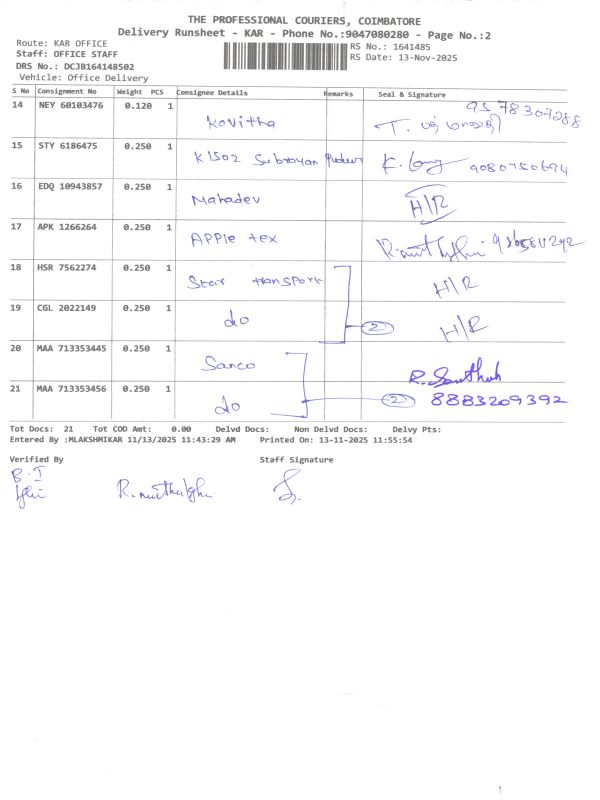 THE PROFESSIONAL COURIERS, COIMBATORE
Delivery Runsheet - KAR - Phone No.:9047080280 - Page No.:2
Route: KAR OFFICE
Staff: OFFICE STAFF
DRS No.: DCJB164148502
Vehicle: Office Delivery
RS No.: 1641485
RS Date: 13-Nov-2025
S No Consignment No Weight PCS Consignee Details Remarks Seal & Signature
14 NEY 60103476 0.120 1 Kavitha 9578307288
15 STY 6186475 0.250 1 9080750694
16 EDQ 10943857 0.250 1 Mahadev H/R
17 APK 1266264 0.250 1 APPle tex
18 HSR 7562274 0.250 1 Star transport H/R
19 CGL 2022149 0.250 1 do 2 H/R
20 MAA 713353445 0.250 1 Sanco
21 MAA 713353456 0.250 1 do 2 8883209392
Tot Docs: 21 Tot COD Amt: 0.00 Delvd Docs: Non Delvd Docs: Delvy Pts:
Entered By :MLAKSHMIKAR 11/13/2025 11:43:29 AM Printed On: 13-11-2025 11:55:54
Verified By Staff Signature